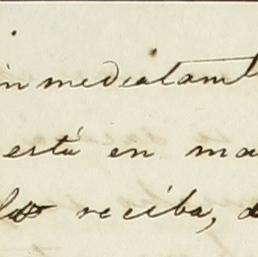 inmediatamt
está en ma
reciba, d